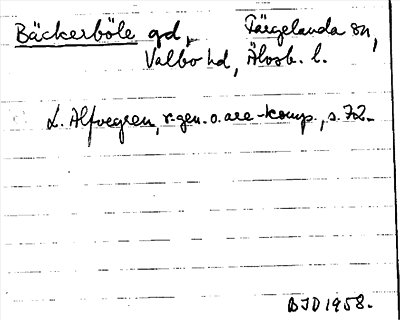 Bäckerböle gd, Färgelanda sn,
Valbo hd, Älvsb. l.
L. Alfvegren, r-gen. o. are-komp., s. 72.
BJD 1958.